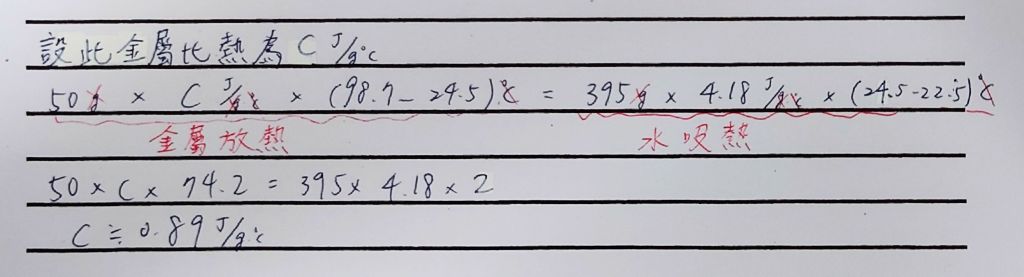 設此金屬比熱為 C J/g℃
50g × C J/g℃ × (98.7-24.5)℃ = 395g × 4.18 J/g℃ × (24.5-22.5)℃
金屬放熱 水吸熱
50 × C × 74.2 = 395 × 4.18 × 2
C ≒ 0.89 J/g℃